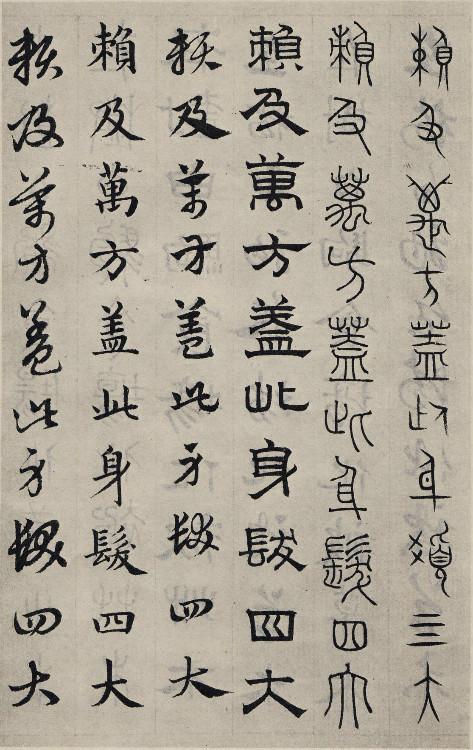 賴及萬方蓋此身髮四大
賴及萬方蓋此身髮四大
賴及萬方蓋此身髮四大
賴及萬方蓋此身髮四大
賴及萬方盖此身髮四大
賴及萬方蓋此身髮四大